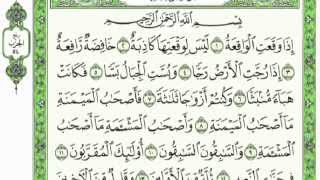 بِسْمِ اللَّهِ الرَّحْمَٰنِ الرَّحِيمِ
إِذَا وَقَعَتِ الْوَاقِعَةُ ١ لَيْسَ لِوَقْعَتِهَا كَاذِبَةٌ ٢ خَافِضَةٌ رَّافِعَةٌ
٣ إِذَا رُجَّتِ الْأَرْضُ رَجًّا ٤ وَبُسَّتِ الْجِبَالُ بَسًّا ٥ فَكَانَتْ
هَبَاءً مُّنبَثًّا ٦ وَكُنتُمْ أَزْوَاجًا ثَلَاثَةً ٧ فَأَصْحَابُ الْمَيْمَنَةِ
مَا أَصْحَابُ الْمَيْمَنَةِ ٨ وَأَصْحَابُ الْمَشْأَمَةِ مَا أَصْحَابُ
الْمَشْأَمَةِ ٩ وَالسَّابِقُونَ السَّابِقُونَ ١٠ أُولَٰئِكَ الْمُقَرَّبُونَ ١١